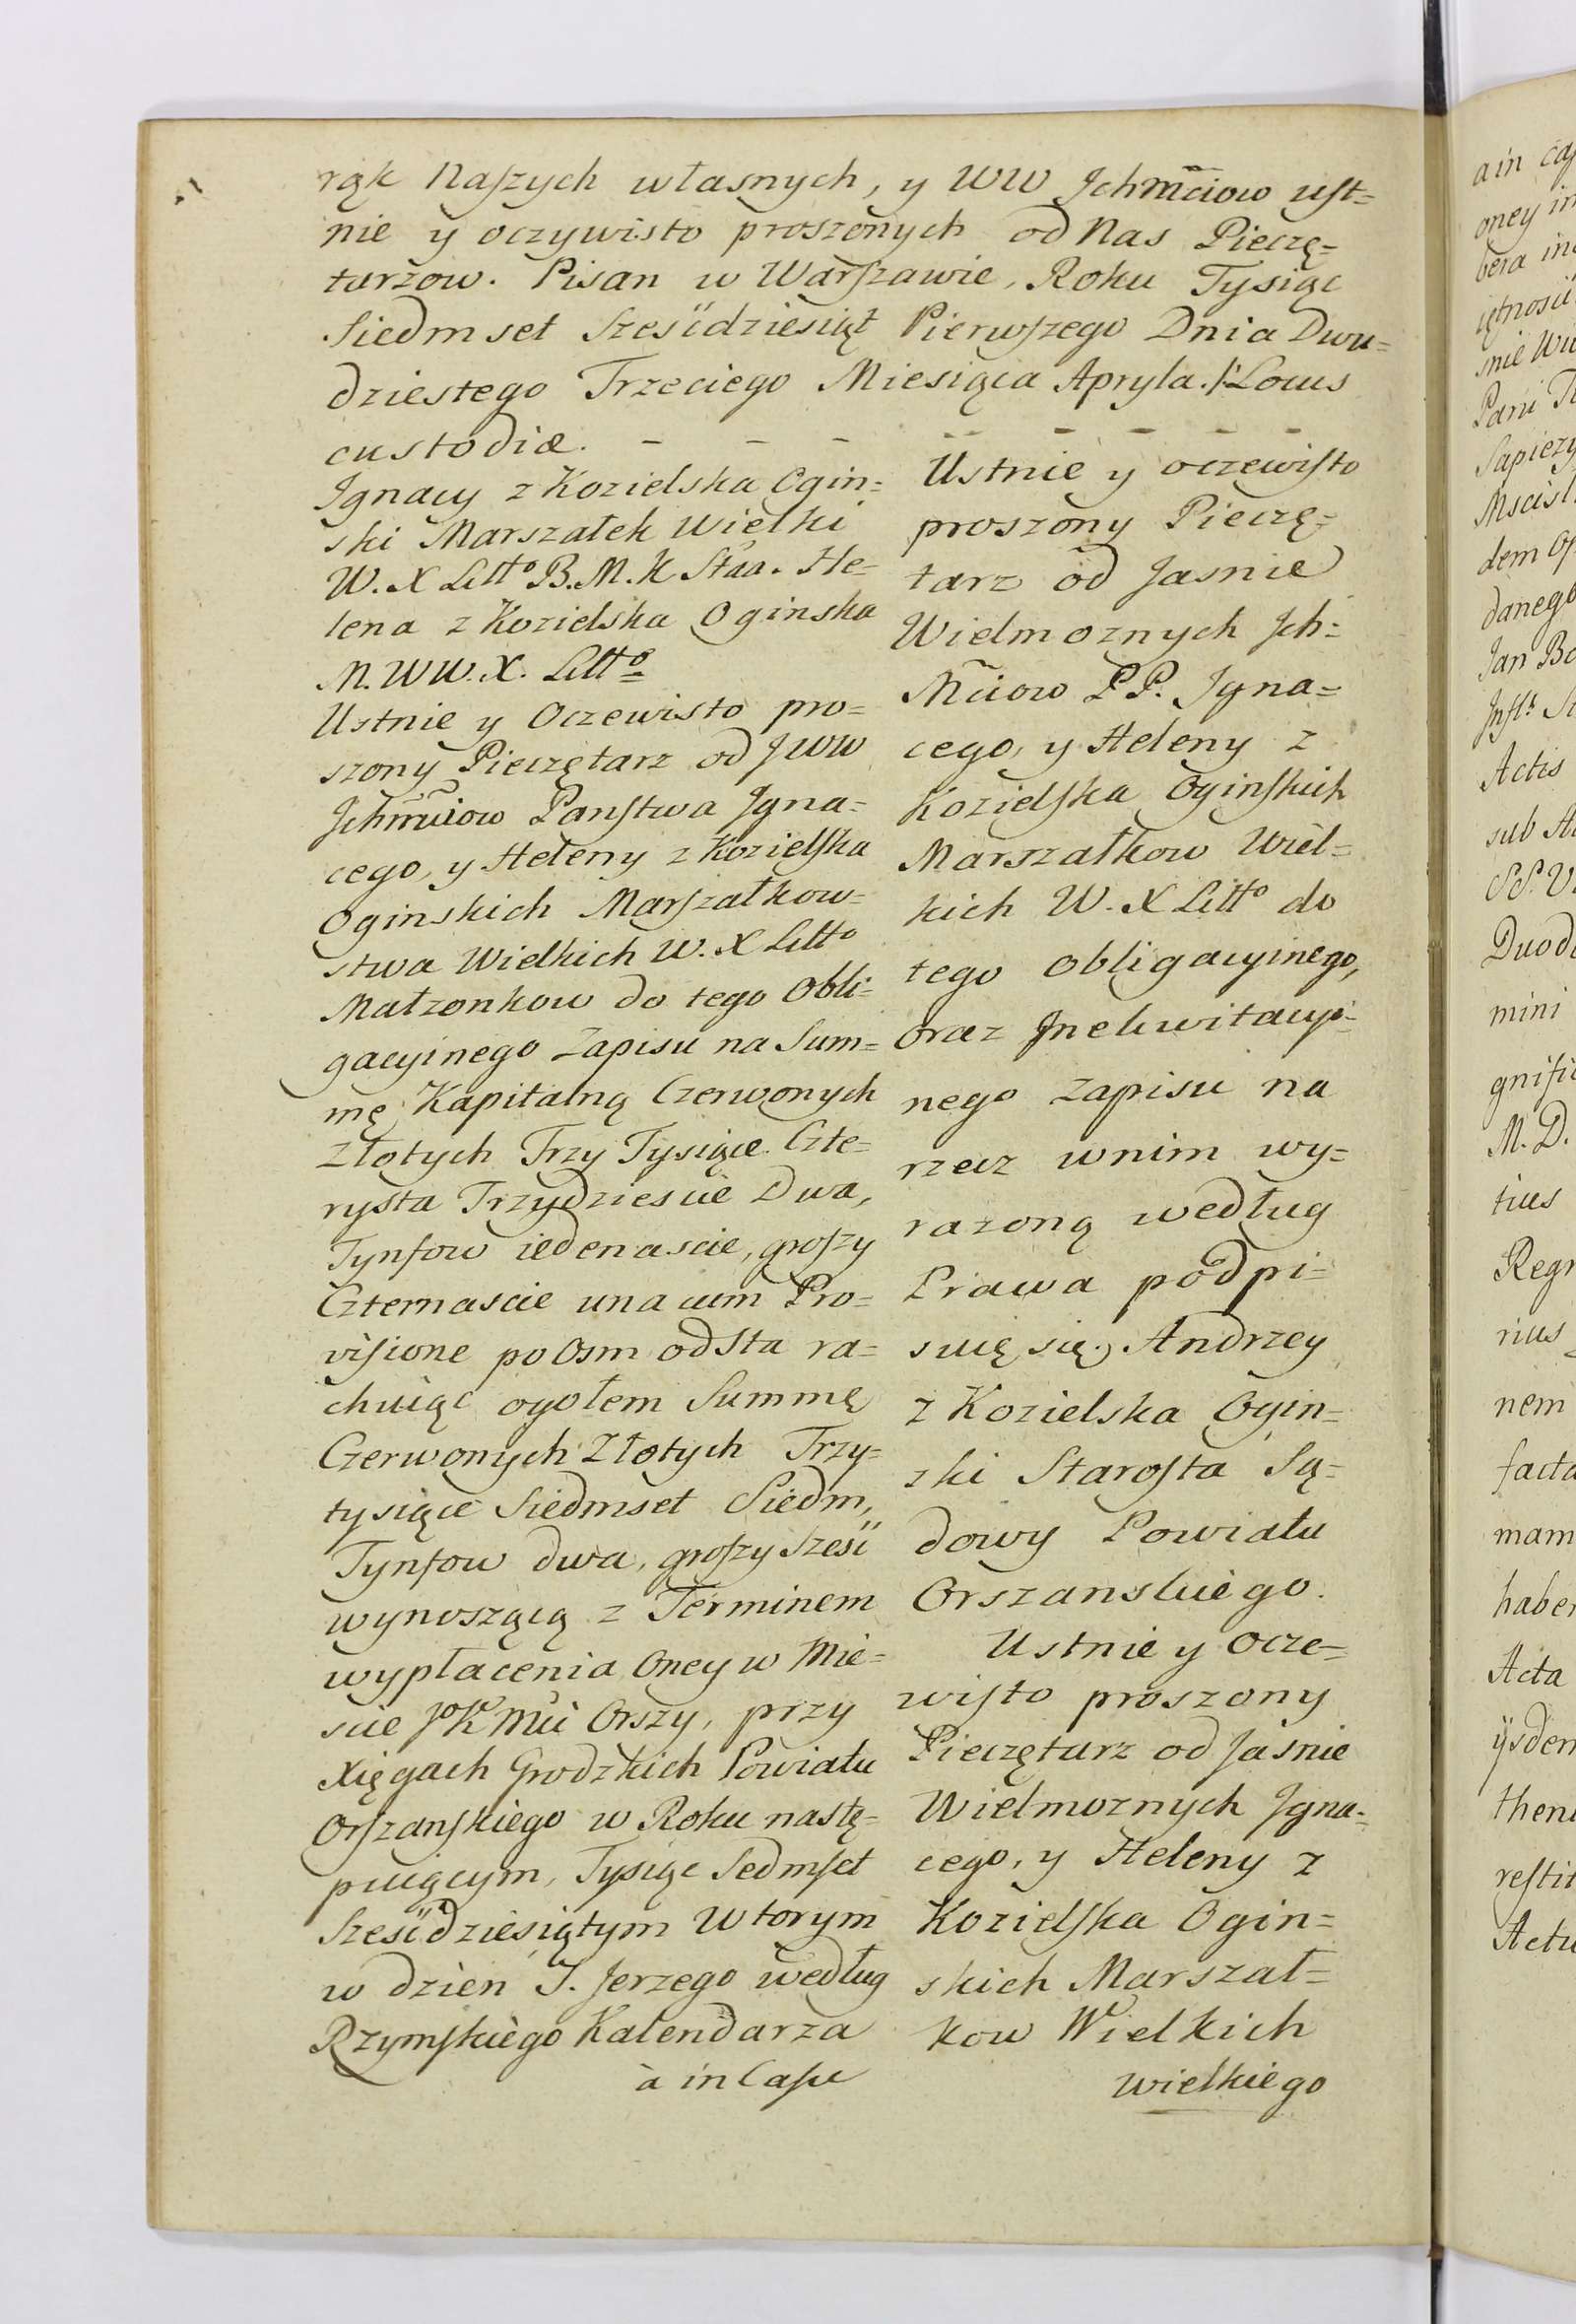 rąk Naszych własnych, y WW Jchmciow ust=
nie y oczywisto proszonych od Nas Pieczę=
tarzow. Pisan w Warszawie, Roku Tysiąc
Siedmset Sześćdziesiąt Pierwszego Dnia Dwu=
dziestego Trzeciego Miesiąca Apryla. /: Locus
custodiæ. - - - - - - - -
Ignacy z Kozielska Ogin=
ski Marszałek Wielki
W. X Litto B. M. K Staa. He=
lena z Kozielska Oginska
M. WW. X. Litto
Ustnie y Oczewisto pro=
szony Pieczętarz od JWW
Jchmciow Panstwa Igna=
cego, y Heleny z Kozielska
Oginskich Marszałkow=
stwa Wielkich W. X Litto
Małzonkow do tego Obli=
gacyinego Zapisu na Sum=
mę Kapitalną Czerwonych
Złotych Trzy Tysiące Czte=
rysta Trzydziescie Dwa,
Tynfow iedenascie, groszy
Czternascie una cum Pro=
visione po Osm od sta ra=
chuiąc ogołem Summę
Czerwonych Złotych Trzy=
tysiące Siedmset Siedm,
Tynfow dwa, groszy sześć
wynoszącą z Terminem
wypłacenia Oney w Mie=
scie JoKMci Orszy, przy
Xięgach Grodzkich Powiatu
Orszanskiego w Roku nastę=
puiącym, Tysiąc Sedmset
Sześćdziesiątym Wtorym
w dzien S. Jerzego według
Rzymskiego Kalendarza
à in Casu
Ustnie y oczewisto
proszony Pieczę=
tarz od Jasnie
Wielmoznych Jch=
Mciow PP. Igna=
cego, y Heleny z
Kozielska Oginskich
Marszałkow Wiel=
kich W. X Litto do
tego obligacyinego,
oraz Inekwitacyi=
nego zapisu na
rzecz wnim wy=
razoną według
Prawa podpi=
suię się. Andrzey
z Kozielska Ogin=
ski Starosta Są=
dowy Powiatu
Orszanskiego.
Ustnie y Ocze=
wisto proszony
Pieczętarz od Jasnie
Wielmoznych Igna=
cego, y Heleny z
Kozielska Ogin=
skich Marszał=
kow Wielkich
wielkiego
a in cas
oney in
bera in
iętnosci
snie Wi
Pani
Sapiezy
Mscisl
dem
danego
Jan Bo
Actis
sub
Duod
mini
gnifi
M. D.
tius
Reg
rius
nem
facta
mam
haber
Acta
ijsdem
then
restit
Actu